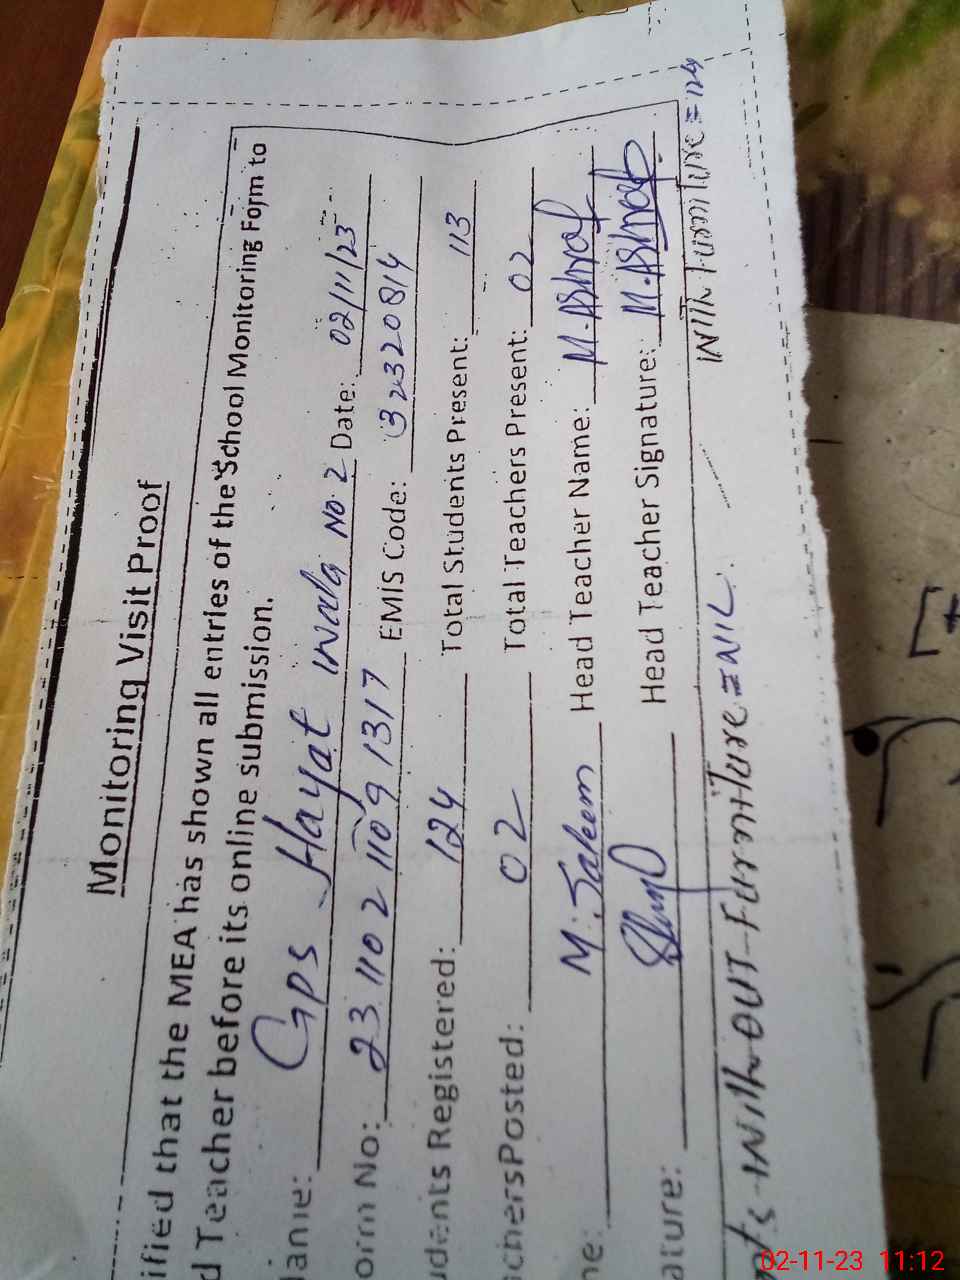 Monitoring Visit Proof
ified that the MEA has shown all entries of the School Monitoring Form to
d Teacher before its online submission.
ame: GPS Hayat No. 2 Date: 02/11/23
orm No: 23 1102 1109 1317 EMIS Code: 32320814
udents Registered: 124 Total Students Present: 113
achers Posted: 02 Total Teachers Present: 02
me: M. Saleem Head Teacher Name: M. Ashraf
ature: Head Teacher Signature: M. Ashraf
WithOUT Furniture = NIL. With Furniture = 124
02-11-23 11:12